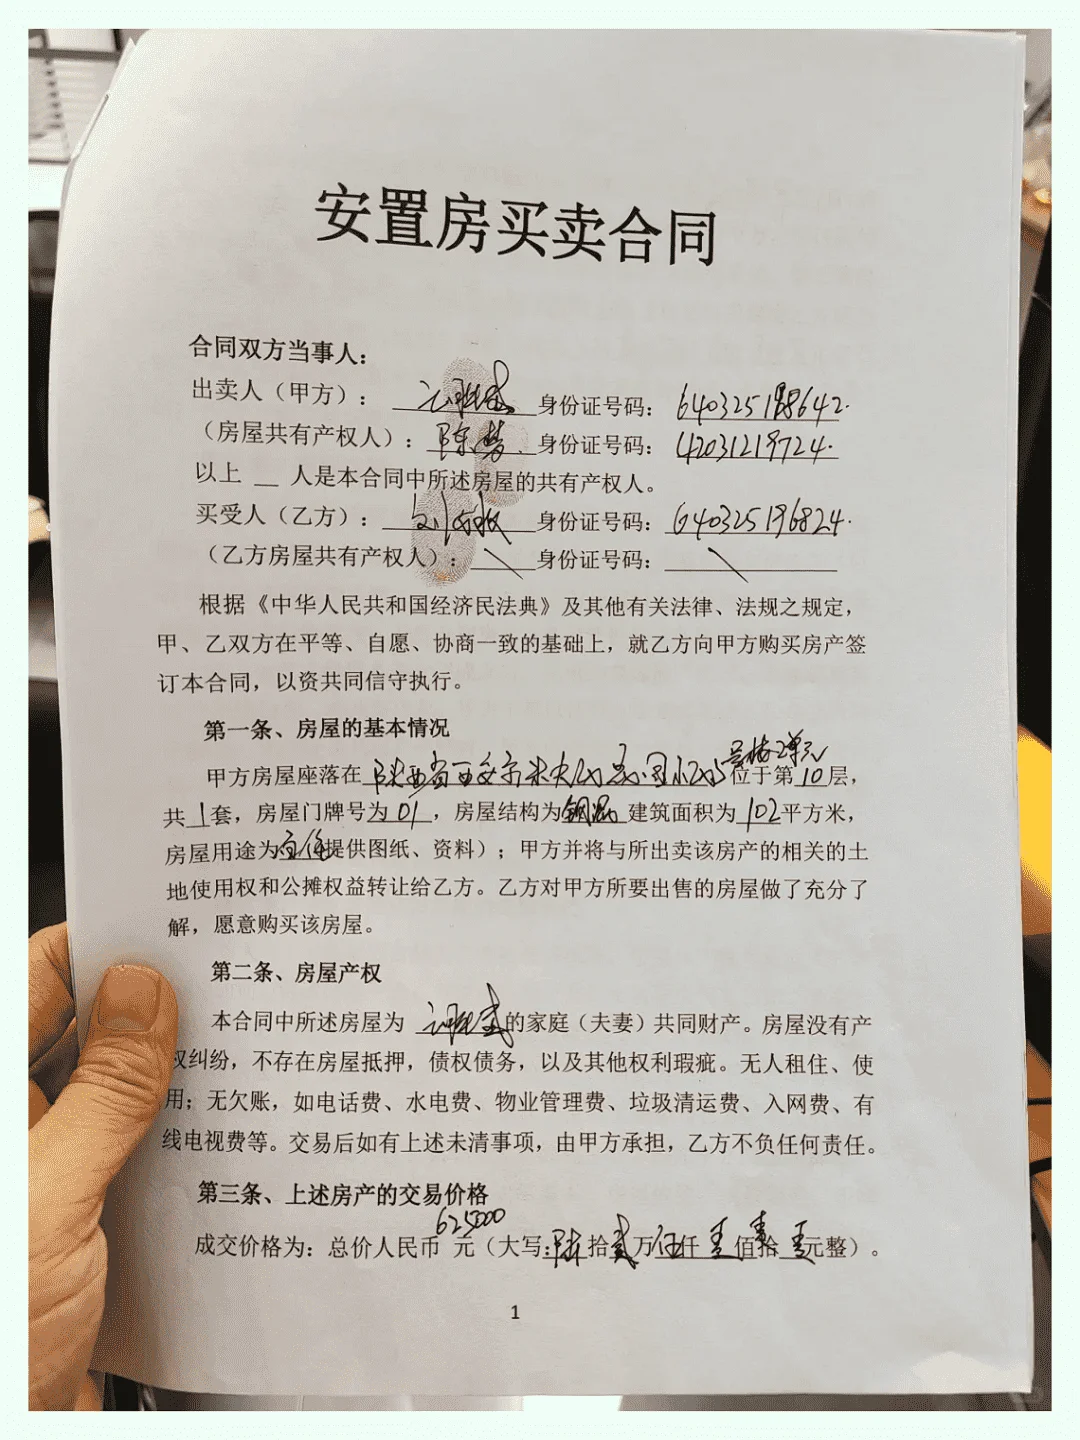 安置房买卖合同
合同双方当事人：
出卖人（甲方）： 身份证号码：640325198642.
（房屋共有产权人）：陈梦. 身份证号码：42031219724.
以上 __ 人是本合同中所述房屋的共有产权人。
买受人（乙方）： 身份证号码：640325196824.
（乙方房屋共有产权人）：\ 身份证号码：\
根据《中华人民共和国经济民法典》及其他有关法律、法规之规定，
甲、乙双方在平等、自愿、协商一致的基础上，就乙方向甲方购买房产签
订本合同，以资共同信守执行。
第一条、房屋的基本情况
号楼2单元
甲方房屋座落在陕西省西安市未央区 位于第10层，
共1套，房屋门牌号为01，房屋结构为钢混建筑面积为102平方米，
房屋用途为住宅提供图纸、资料）；甲方并将与所出卖该房产的相关的土
地使用权和公摊权益转让给乙方。乙方对甲方所要出售的房屋做了充分了
解，愿意购买该房屋。
第二条、房屋产权
本合同中所述房屋为 的家庭（夫妻）共同财产。房屋没有产
权纠纷，不存在房屋抵押，债权债务，以及其他权利瑕疵。无人租住、使
用；无欠账，如电话费、水电费、物业管理费、垃圾清运费、入网费、有
线电视费等。交易后如有上述未清事项，由甲方承担，乙方不负任何责任。
第三条、上述房产的交易价格
625000
成交价格为：总价人民币 元（大写：陆拾贰万伍仟 佰 拾 元整）。
1